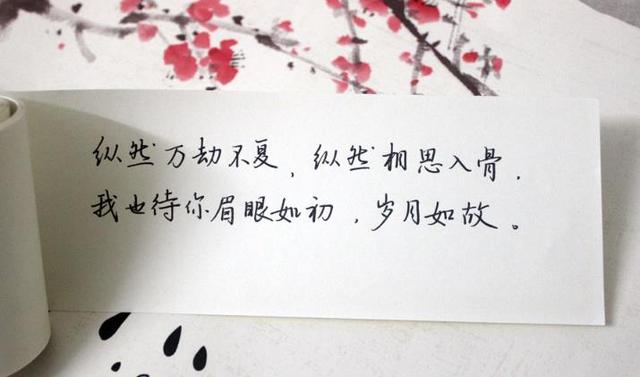 纵然万劫不复、纵然相思入骨,
我也待你眉眼如初,岁月如故。